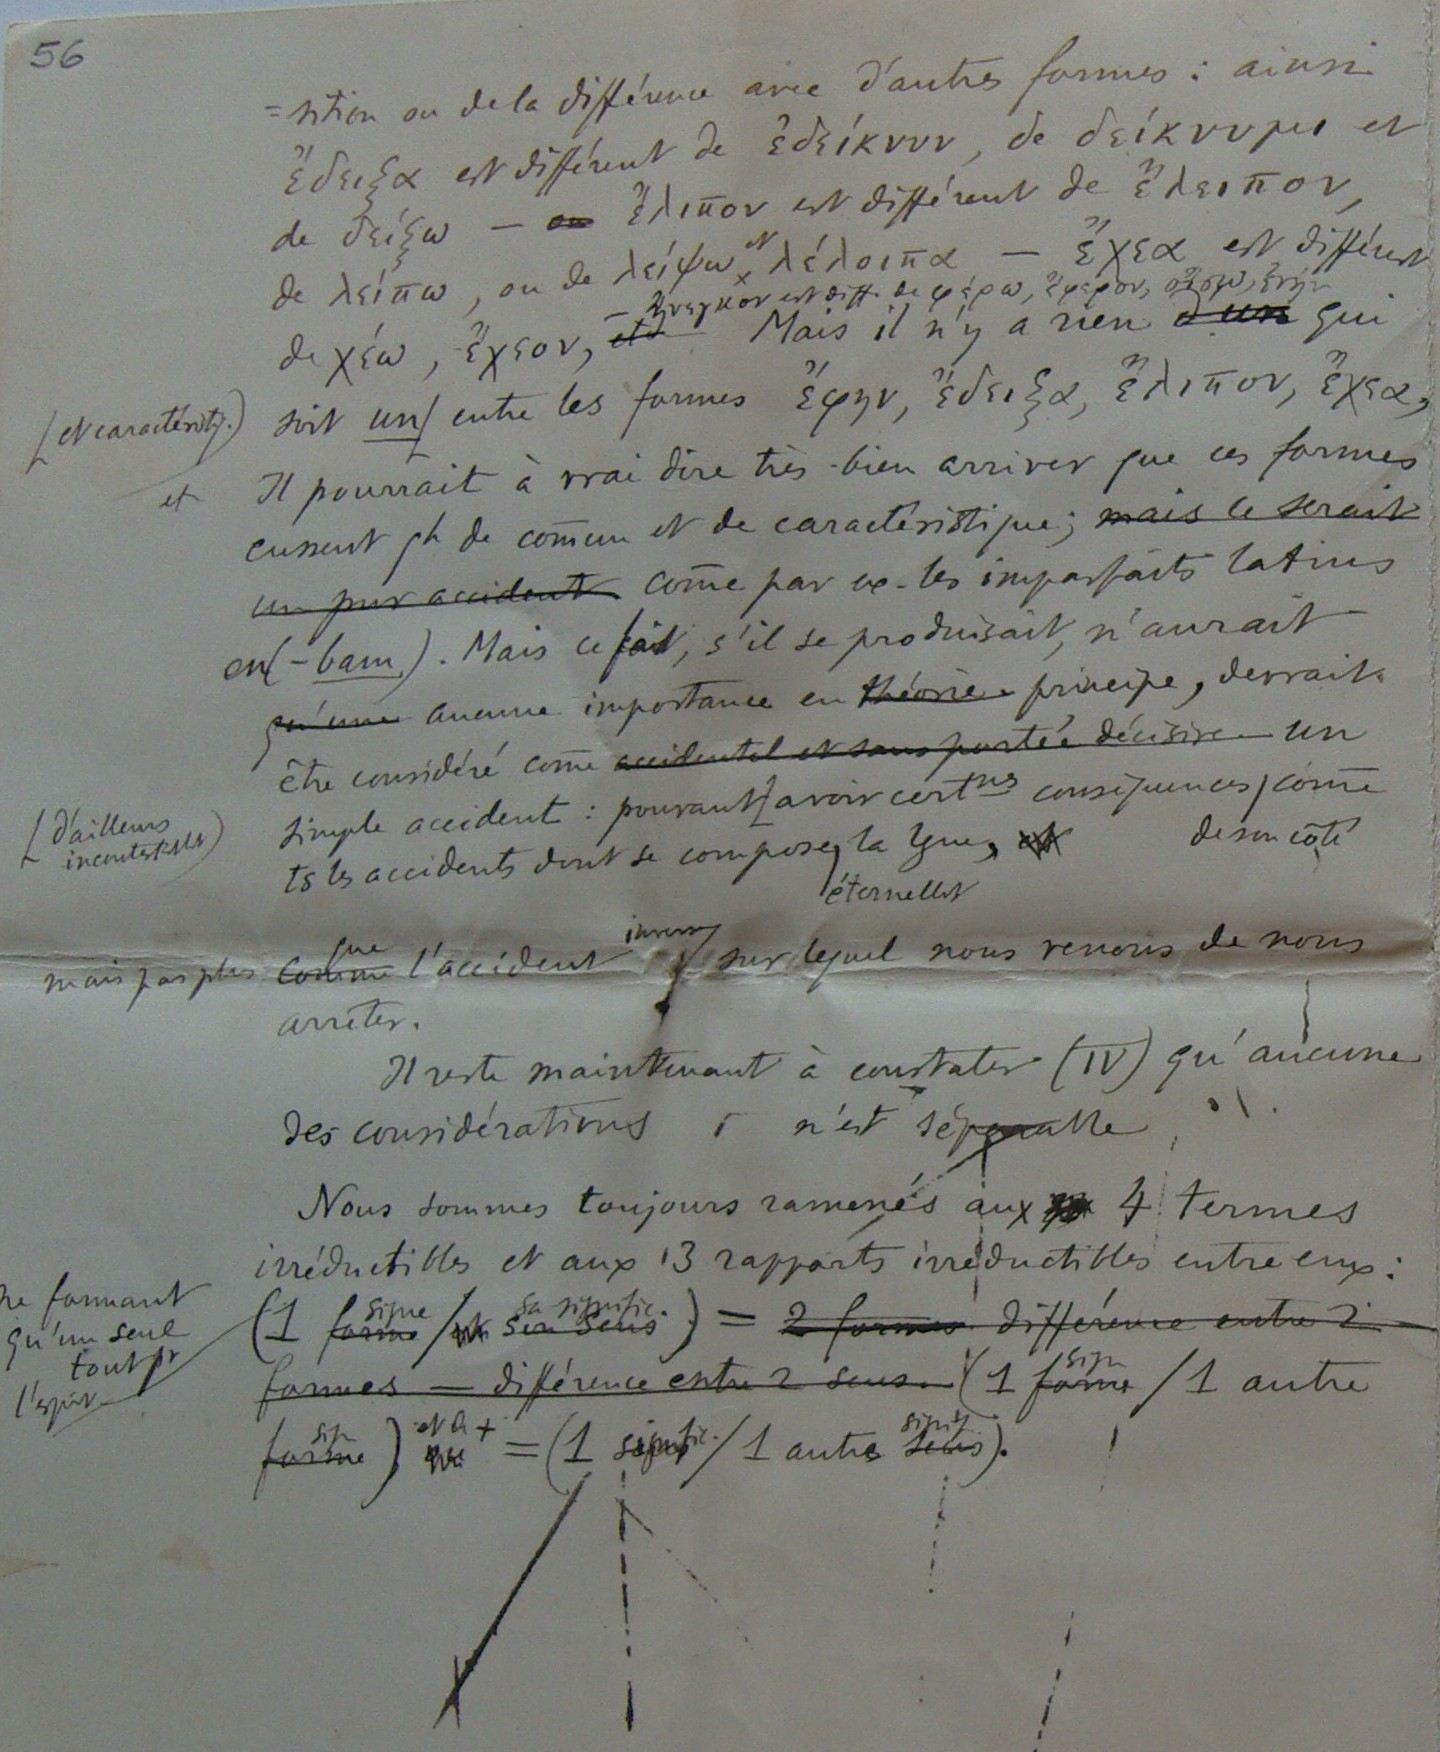 56
=sition ou de la différence avec d'autres formes : ainsi
ἔδειξα est différent de ἐδείκνυν, de δείκνυμι et
de δείξω — ou ἔλιπον est différent de ἔλειπον,
de λείπω, ou de λείψω et λέλοιπα — ἔχεα est différent
— ἤνεγκον est diff. de φέρω, ἔφερον, οἴσω,
de χέω, ἔχεον, etc Mais il n'y a rien d'un qui
[et caractéristiq.) soit un[ entre les formes ἔφην, ἔδειξα, ἔλιπον, ἔχεα,
et Il pourrait à vrai dire très-bien arriver que ces formes
eussent qh de com̄un et de caractéristique; mais ce serait
un pur accident com̄e par ex. les imparfaits latins
en(-bam). Mais ce fait, s'il se produisait, n'aurait
qu'une aucune importance en théorie principe, devrait
être considéré com̄e accidentel et sans portée décisive un
[d'ailleurs
incontestables)
simple accident : pouvant[avoir cert^nes conséquences, com̄e
ts les accidents dont se compose, la lgue, de son côté
éternellt
mais pas plus comme que l'accident inverse sur lequel nous venons de nous
arrêter.
Il reste maintenant à constater (IV) qu'aucune
des considérations n'est séparable
Nous sommes toujours ramenés aux 4 termes
irréductibles et aux 3 rapports irréductibles entre eux :
ne formant
qu'un seul
tout pr
l'esprit
(1 forme signe / son sens sa signific.) = 2 formes différence entre 2
formes — différence entre 2 sens. (1 forme sign / 1 autre
forme sign) et de + = (1 signific. / 1 autre sens signif).